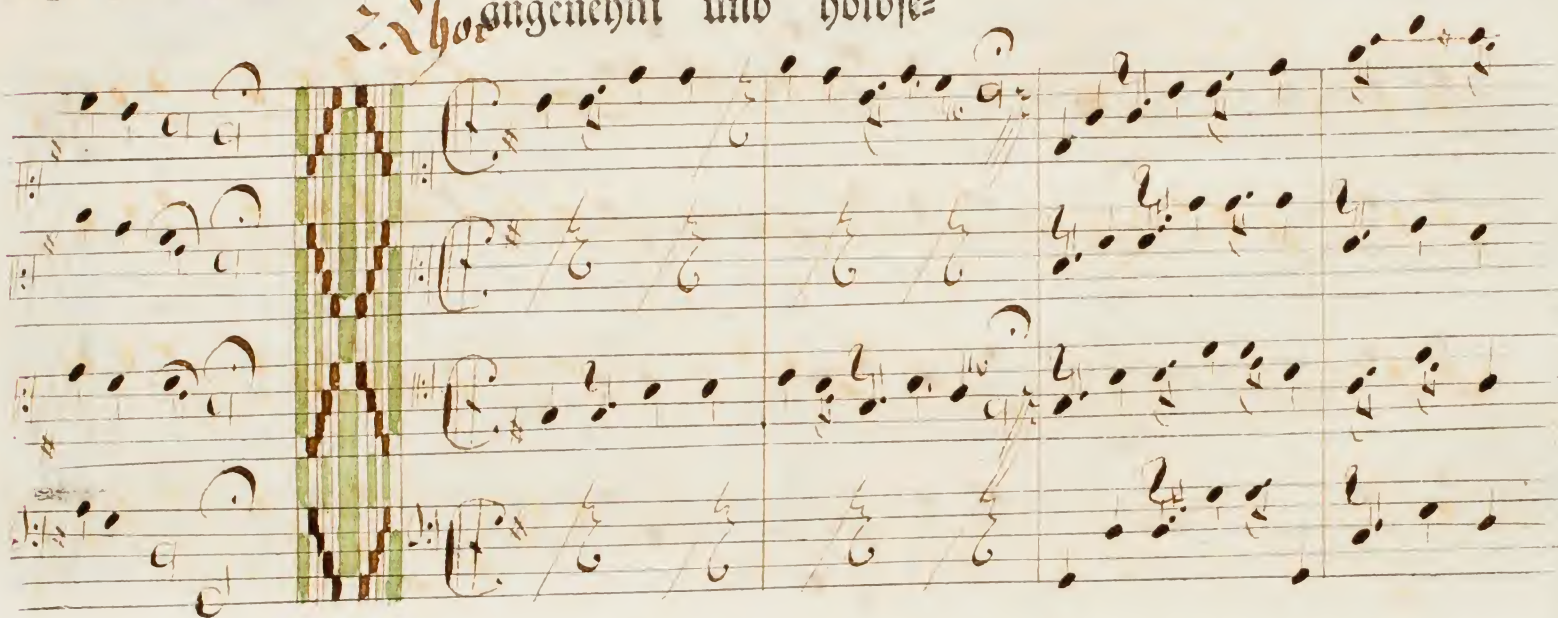 2. Chor angenehm und holdse=